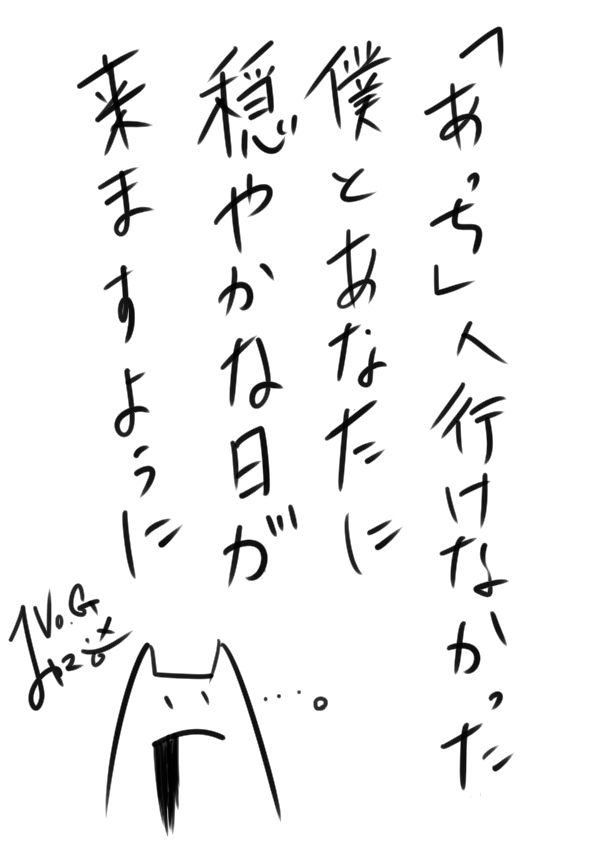 「あっち」へ行けなかった
僕とあなたに
穏やかな日が
来ますように
…。